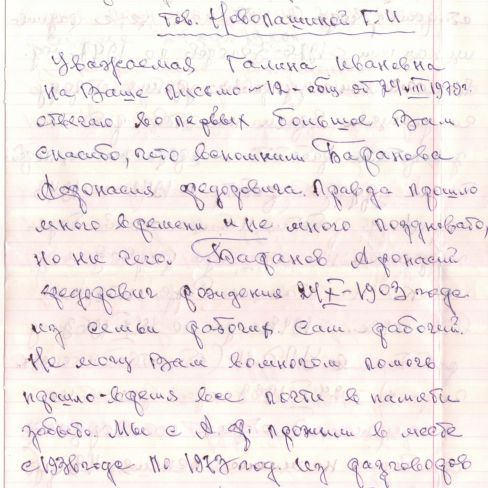 тов. Новопашиной Г. И
Уважаемая Галина Ивановна
На Ваше письмо-12-общ от 24 VIII 1979г.
отвечаю во первых большое Вам
спасибо, что вспомнили Баранова
Афонасия федоровича. Правда прошло
много времени и не много поздновато,
но ни чего. Баранов Афонасий
федорович рождения 24 X-1903 года
из семьи рабочих сам рабочий.
Не могу Вам вомногом помочь
прошло-время все почти в памяти
забыто. Мы с А.Ф. прожили в месте
с 1938 года по 1973 год из разговоров